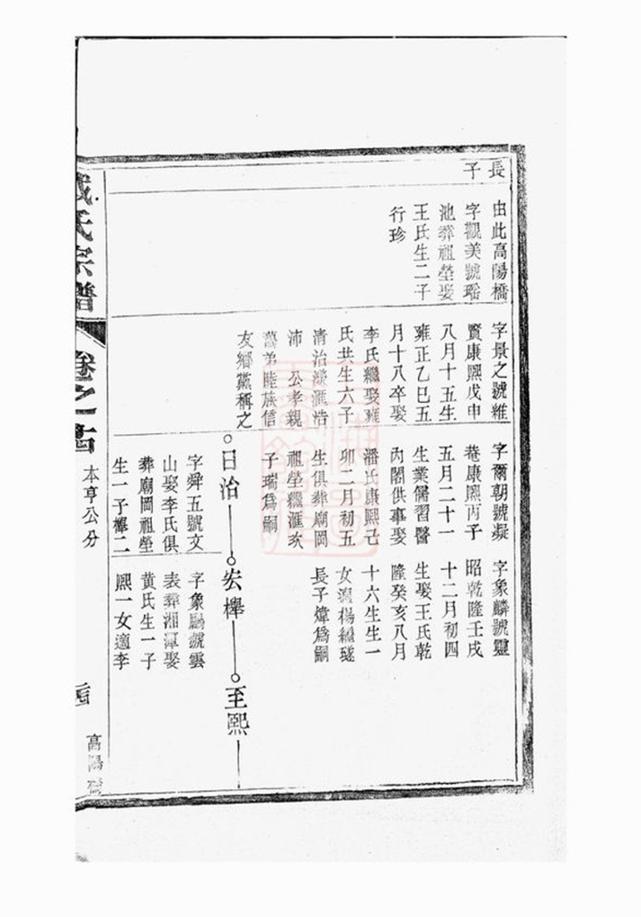 長
子
由此高陽橋
字觀美號瑶
池葬祖塋娶
王氏生二子
行珍
字景之號維
賢康熙戊申
八月十五生
雍正乙巳五
月十八卒娶
李氏繼娶雍
氏共生六子
清治濂滙浩
沛 公孝親
篤弟睦族信
友鄉黨稱之
字爾朝號凝
菴康熙丙子
五月二十一
生業儒習醫
內閣供事娶
潘氏康熙己
卯二月初五
生俱葬廟岡
祖塋繼滙次
子瑞爲嗣
字象麟號靈
昭乾隆壬戌
十二月初四
生娶王氏乾
隆癸亥八月
十六生生一
女適楊繼璲
長子煒爲嗣
日治
宏樺
至熙
字舜五號文
山娶李氏俱
葬廟岡祖塋
生一子樺二
字象鵬號雲
表葬湘潭娶
黃氏生一子
熙一女適李
氏宗譜
卷之一
本亨公分
高陽